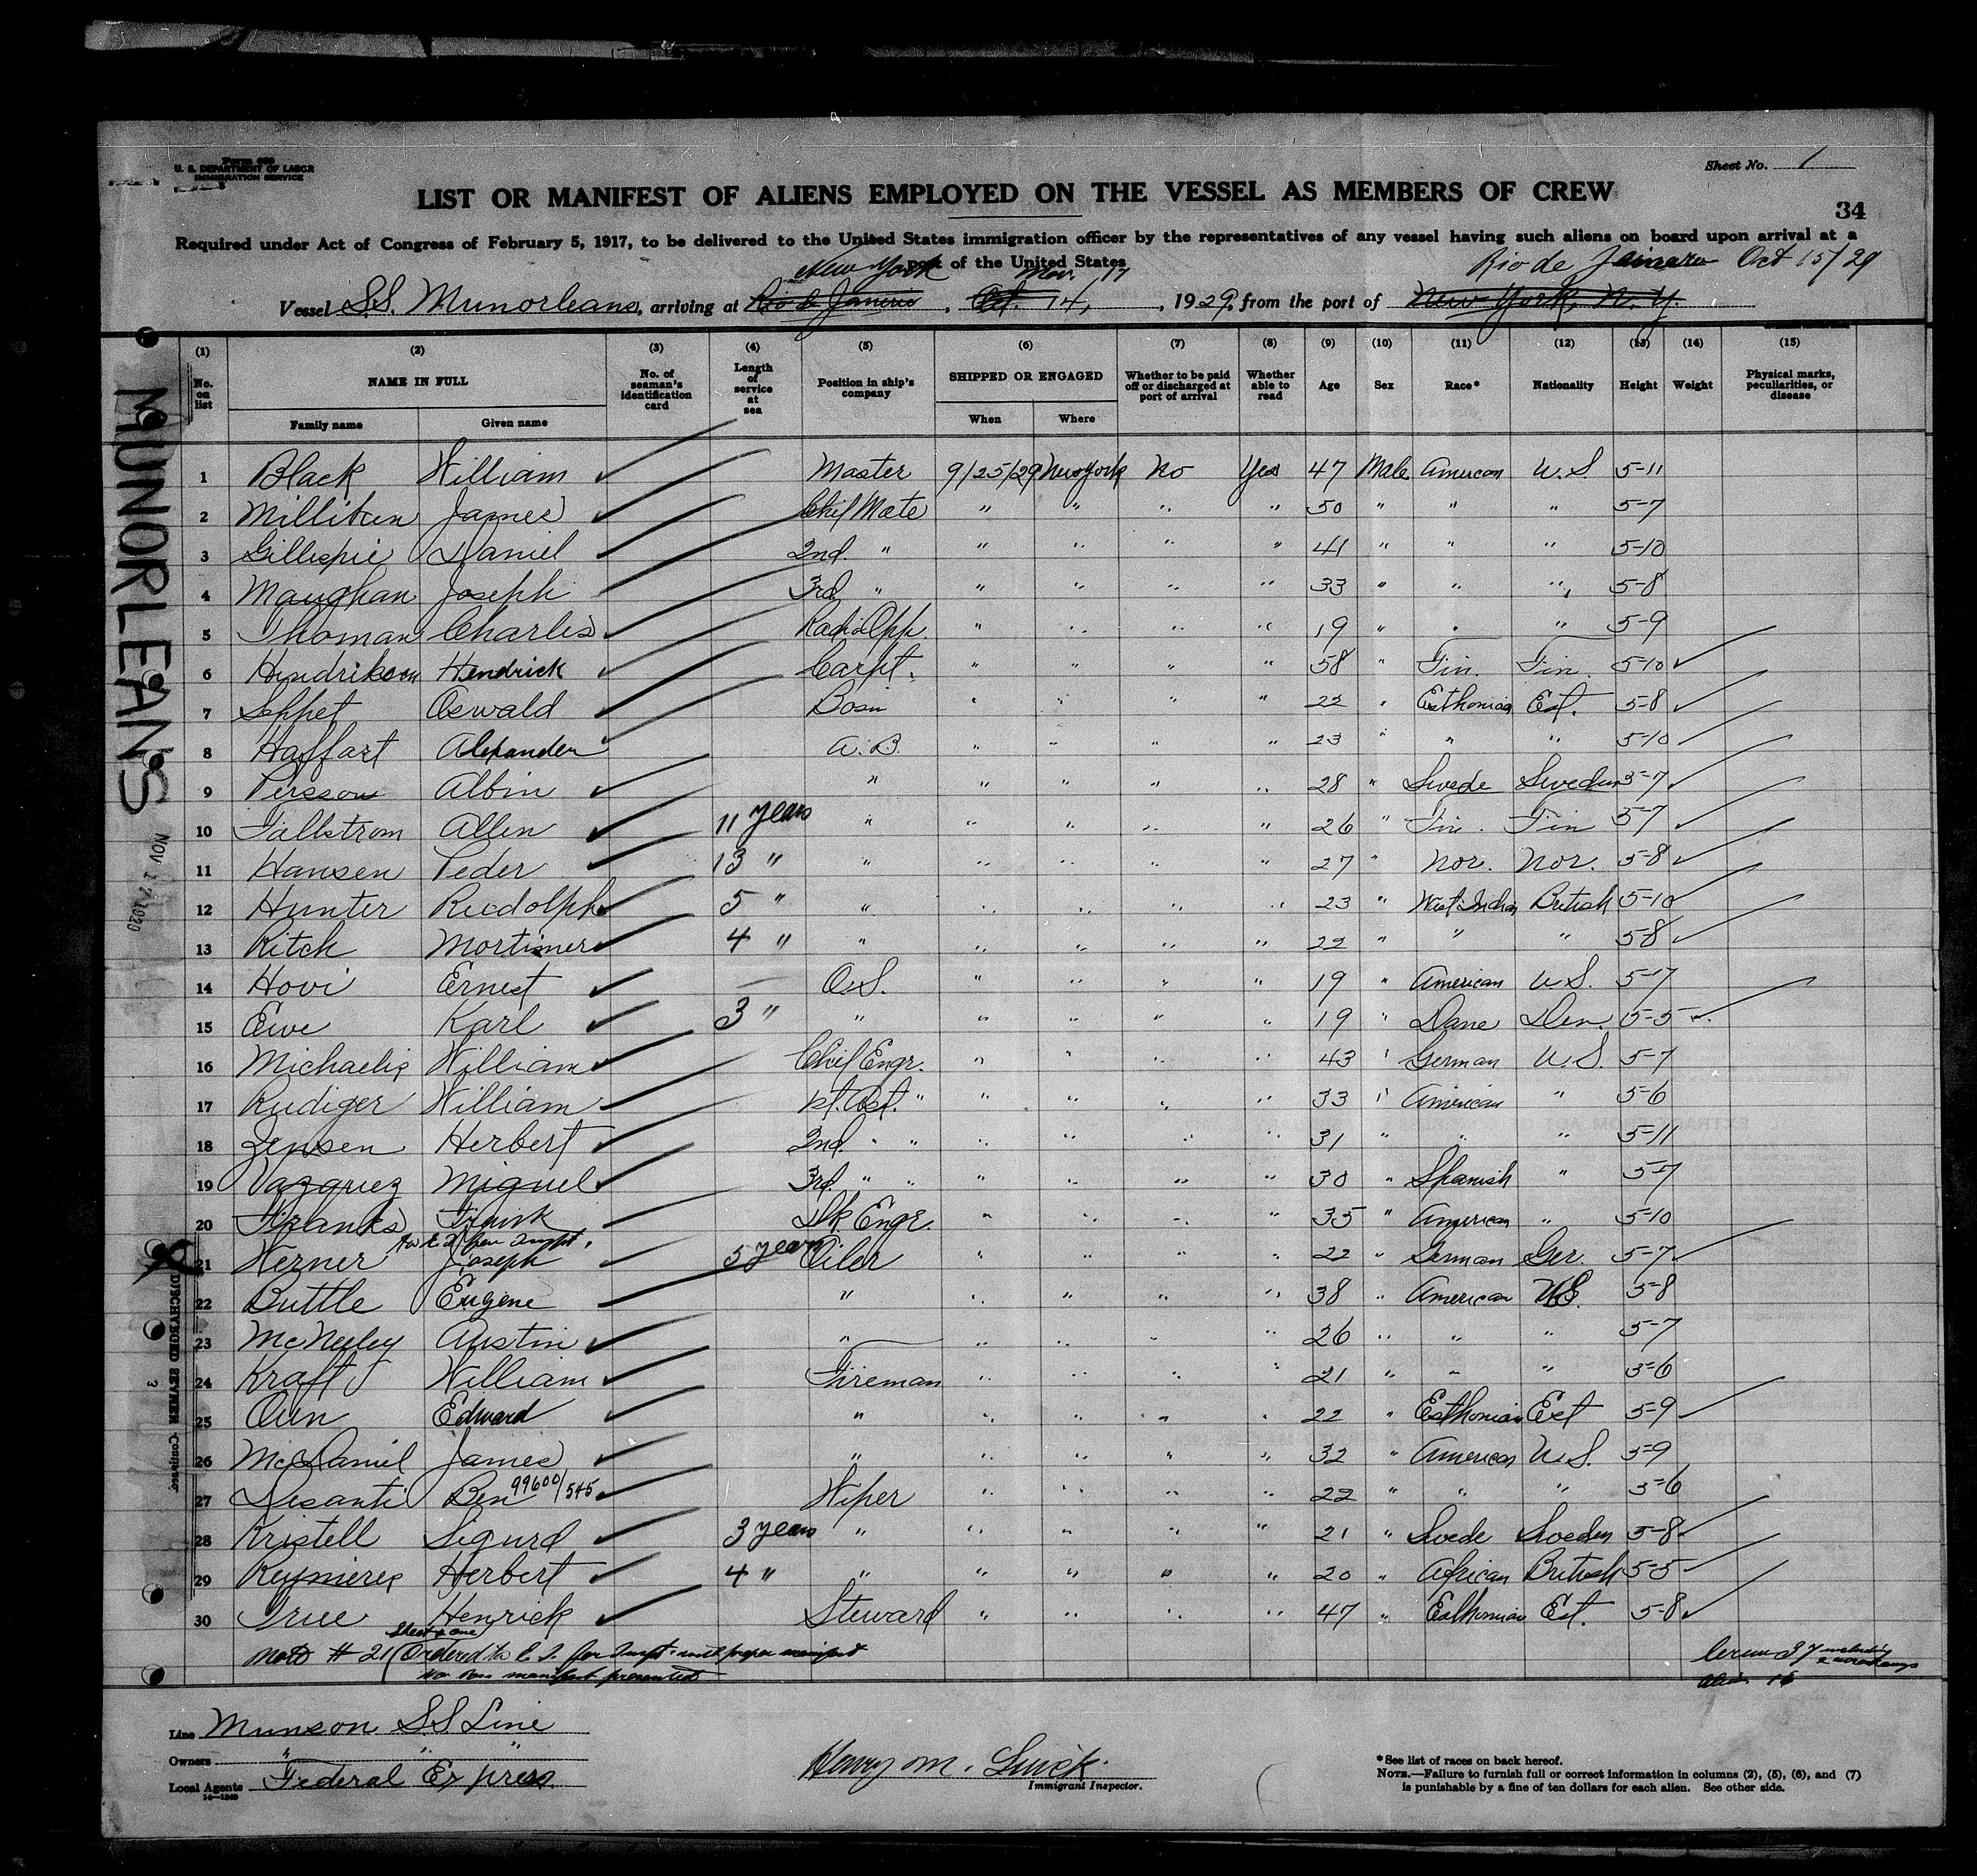 Form 680
U. S. DEPARTMENT OF LABOR
IMMIGRATION SERVICE
Sheet No. 1
LIST OR MANIFEST OF ALIENS EMPLOYED ON THE VESSEL AS MEMBERS OF CREW
34
Required under Act of Congress of February 5, 1917, to be delivered to the United States immigration officer by the representatives of any vessel having such aliens on board upon arrival at a
port of the United States
New York Nov. 17 Rio de Janeiro Oct 15/29
Vessel S.S. Munorleans, arriving at Rio de Janeiro, Oct. 14, 1929, from the port of New York, N.Y.
(1) (2) (3) (4) (5) (6) (7) (8) (9) (10) (11) (12) (13) (14) (15)
No. on list NAME IN FULL No. of seaman's identification card Length of service at sea Position in ship's company SHIPPED OR ENGAGED Whether to be paid off or discharged at port of arrival Whether able to read Age Sex Race* Nationality Height Weight Physical marks, peculiarities, or disease
Family name Given name When Where
1 Black William Master 9/25/29 New York No Yes 47 Male American U.S. 5-11
2 Milliken James Chief Mate " " " " 50 " " " 5-7
3 Gillespie Daniel 2nd " " " " " 41 " " " 5-10
4 Maughan Joseph 3rd " " " " " 33 " " " 5-8
5 Thomas Charles Radio Opp. " " " " 19 " " " 5-9
6 Hendrikson Hendrick Carpt. " " " " 58 " Fin. Fin. 5-10
7 Seppet Oswald Bosn " " " " 22 " Esthonian Est. 5-8
8 Haffart Alexander A.B. " " " " 23 " " " 5-10
9 Persson Albin " " " " " 28 " Swede Sweden 5-7
10 Fallstrom Allen 11 years " " " " " 26 " Fin. Fin 5-7
11 Hansen Peder 13 " " " " " " 27 " Nor. Nor. 5-8
12 Hunter Rudolph 5 " " " " " " 23 " West Indian British 5-10
13 Ritch Mortimer 4 " " " " " " 22 " " " 5-8
14 Hovi Ernest O.S. " " " " 19 " American U.S. 5-7
15 Ewe Karl 3 " " " " " " 19 " Dane Den. 5-5
16 Michaelis William Chief Engr. " " " " 43 " German U.S. 5-7
17 Rudiger William 1st. Ast. " " " " " 33 " American " 5-6
18 Jensen Herbert 2nd. " " " " " " 31 " " " 5-11
19 Vazquez Miguel 3rd. " " " " " " 30 " Spanish " 5-7
20 Franks Frank Dk Engr. " " " " 35 " American " 5-10
21 Werner Joseph 5 years Oiler " " " " 22 " German Ger. 5-7
22 Buttle Eugene " " " " " 38 " American U.S. 5-8
23 McNeeley Austin " " " " " 26 " " " 5-7
24 Kraft William Fireman " " " " 21 " " " 5-6
25 Oun Edward " " " " " 22 " Esthonian Est 5-9
26 McDaniel James " " " " " 32 " American U.S. 5-9
27 Desanti Ben 99600/545 Wiper " " " " 22 " " " 5-6
28 Kristell Sigurd 3 years " " " " " 21 " Swede Sweden 5-8
29 Reynieres Herbert 4 " " " " " " 20 " African British 5-5
30 True Henrick Steward " " " " 47 " Esthonian Est. 5-8
Sheet one
Note # 21 (Ordered to E.I. for
manifest presented
Crew 37 including
Alien 16
Line Munson S.S. Line
Owners " " "
Local Agents Federal Express.
14—1240
Henry M.
Immigrant Inspector.
*See list of races on back hereof.
NOTE.—Failure to furnish full or correct information in columns (2), (5), (6), and (7)
is punishable by a fine of ten dollars for each alien. See other side.
MUNORLEANS
NOV 17 1929